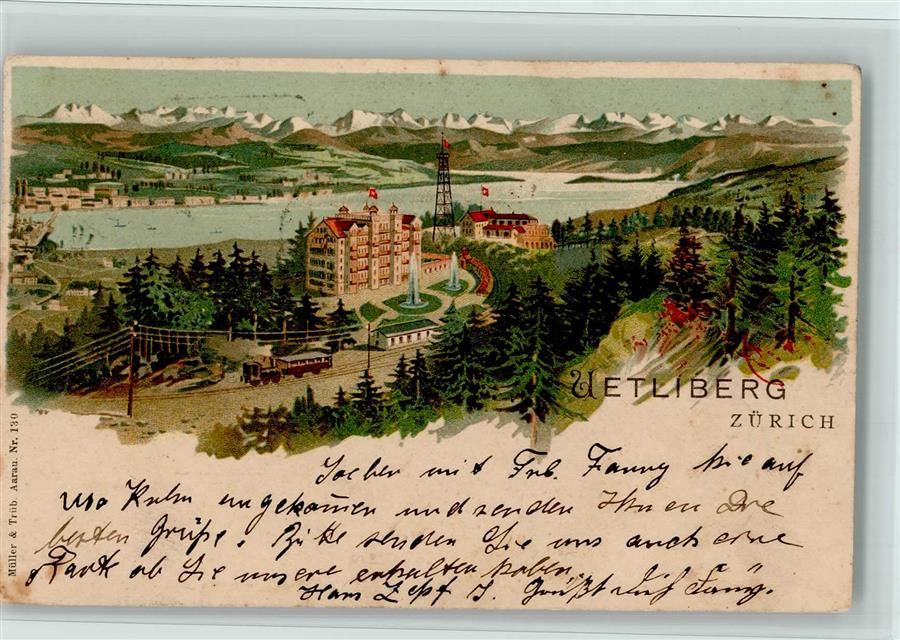 UETLIBERG
ZÜRICH
Müller & Trüb. Aarau. Nr. 130
Soeben mit Frl. Fanny hie auf
Kulm angekom̄en und senden Ihnen Die
besten Grüße. Bitte senden Sie uns auch eine
Kart ob Sie unsere erhalten haben
Hans Zepf J. Grüßt Dich Fany.